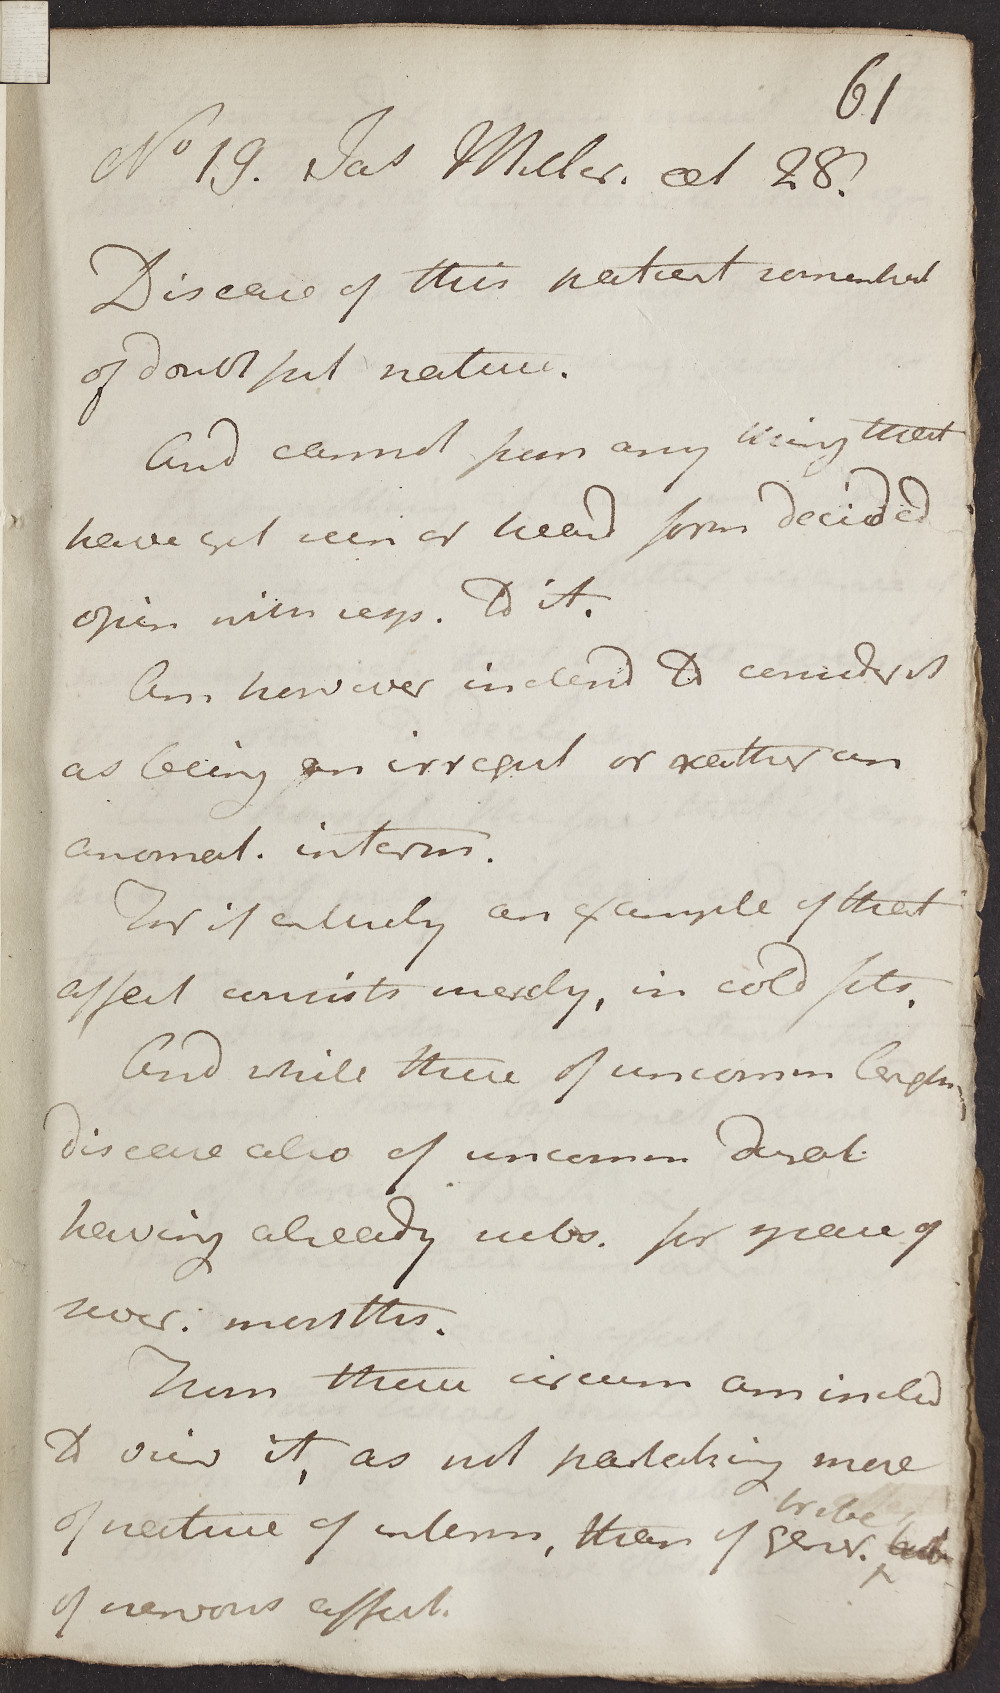 61
No 19. Jas Miller. aet 28.
Disease of this patient somewhat
of doubtful nature.
And cannot from any thing that
have yet seen or heard form decided
opin with resp. to it.
Am however inclend to consider it
as being an irregul or rather an
anomal. interm.
For if entirely an example of that
affect consists merely, in cold fits.
And while these of uncomm length
disease also of uncomm durat.
having already subs. for space of
sever. months.
From these circum am incled
to view it, as not partaking more
of nature of interm, than of gener. tribe
of nervous affect.